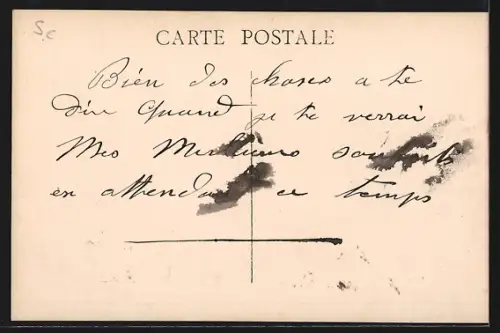 Sc
CARTE POSTALE
Bien des choses a te
dire quand je te verrai
Mes Meilleurs souhaits
en attendant ce temps